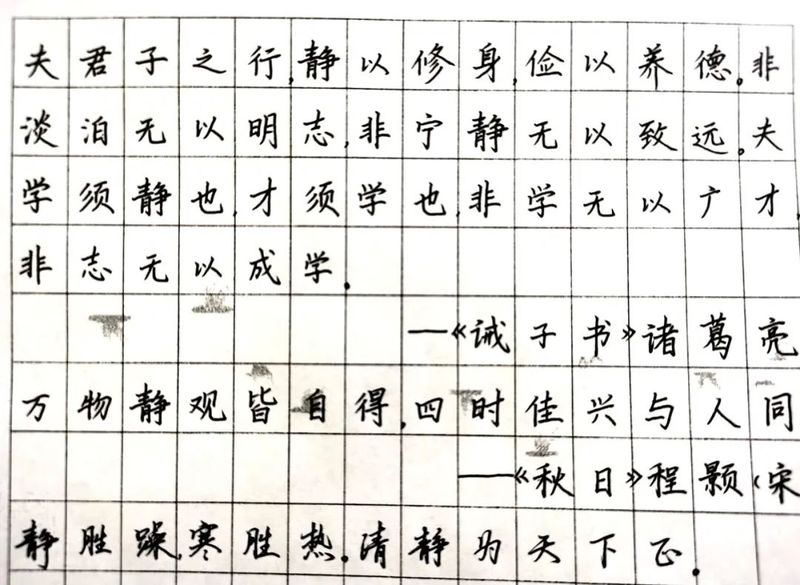 夫君子之行,静以修身,俭以养德。非
淡泊无以明志,非宁静无以致远。夫
学须静也,才须学也,非学无以广才,
非志无以成学.
—《诫子书》诸葛亮
万物静观皆自得,四时佳兴与人同
——《秋日》程颢(宋
静胜躁,寒胜热.清静为天下正.